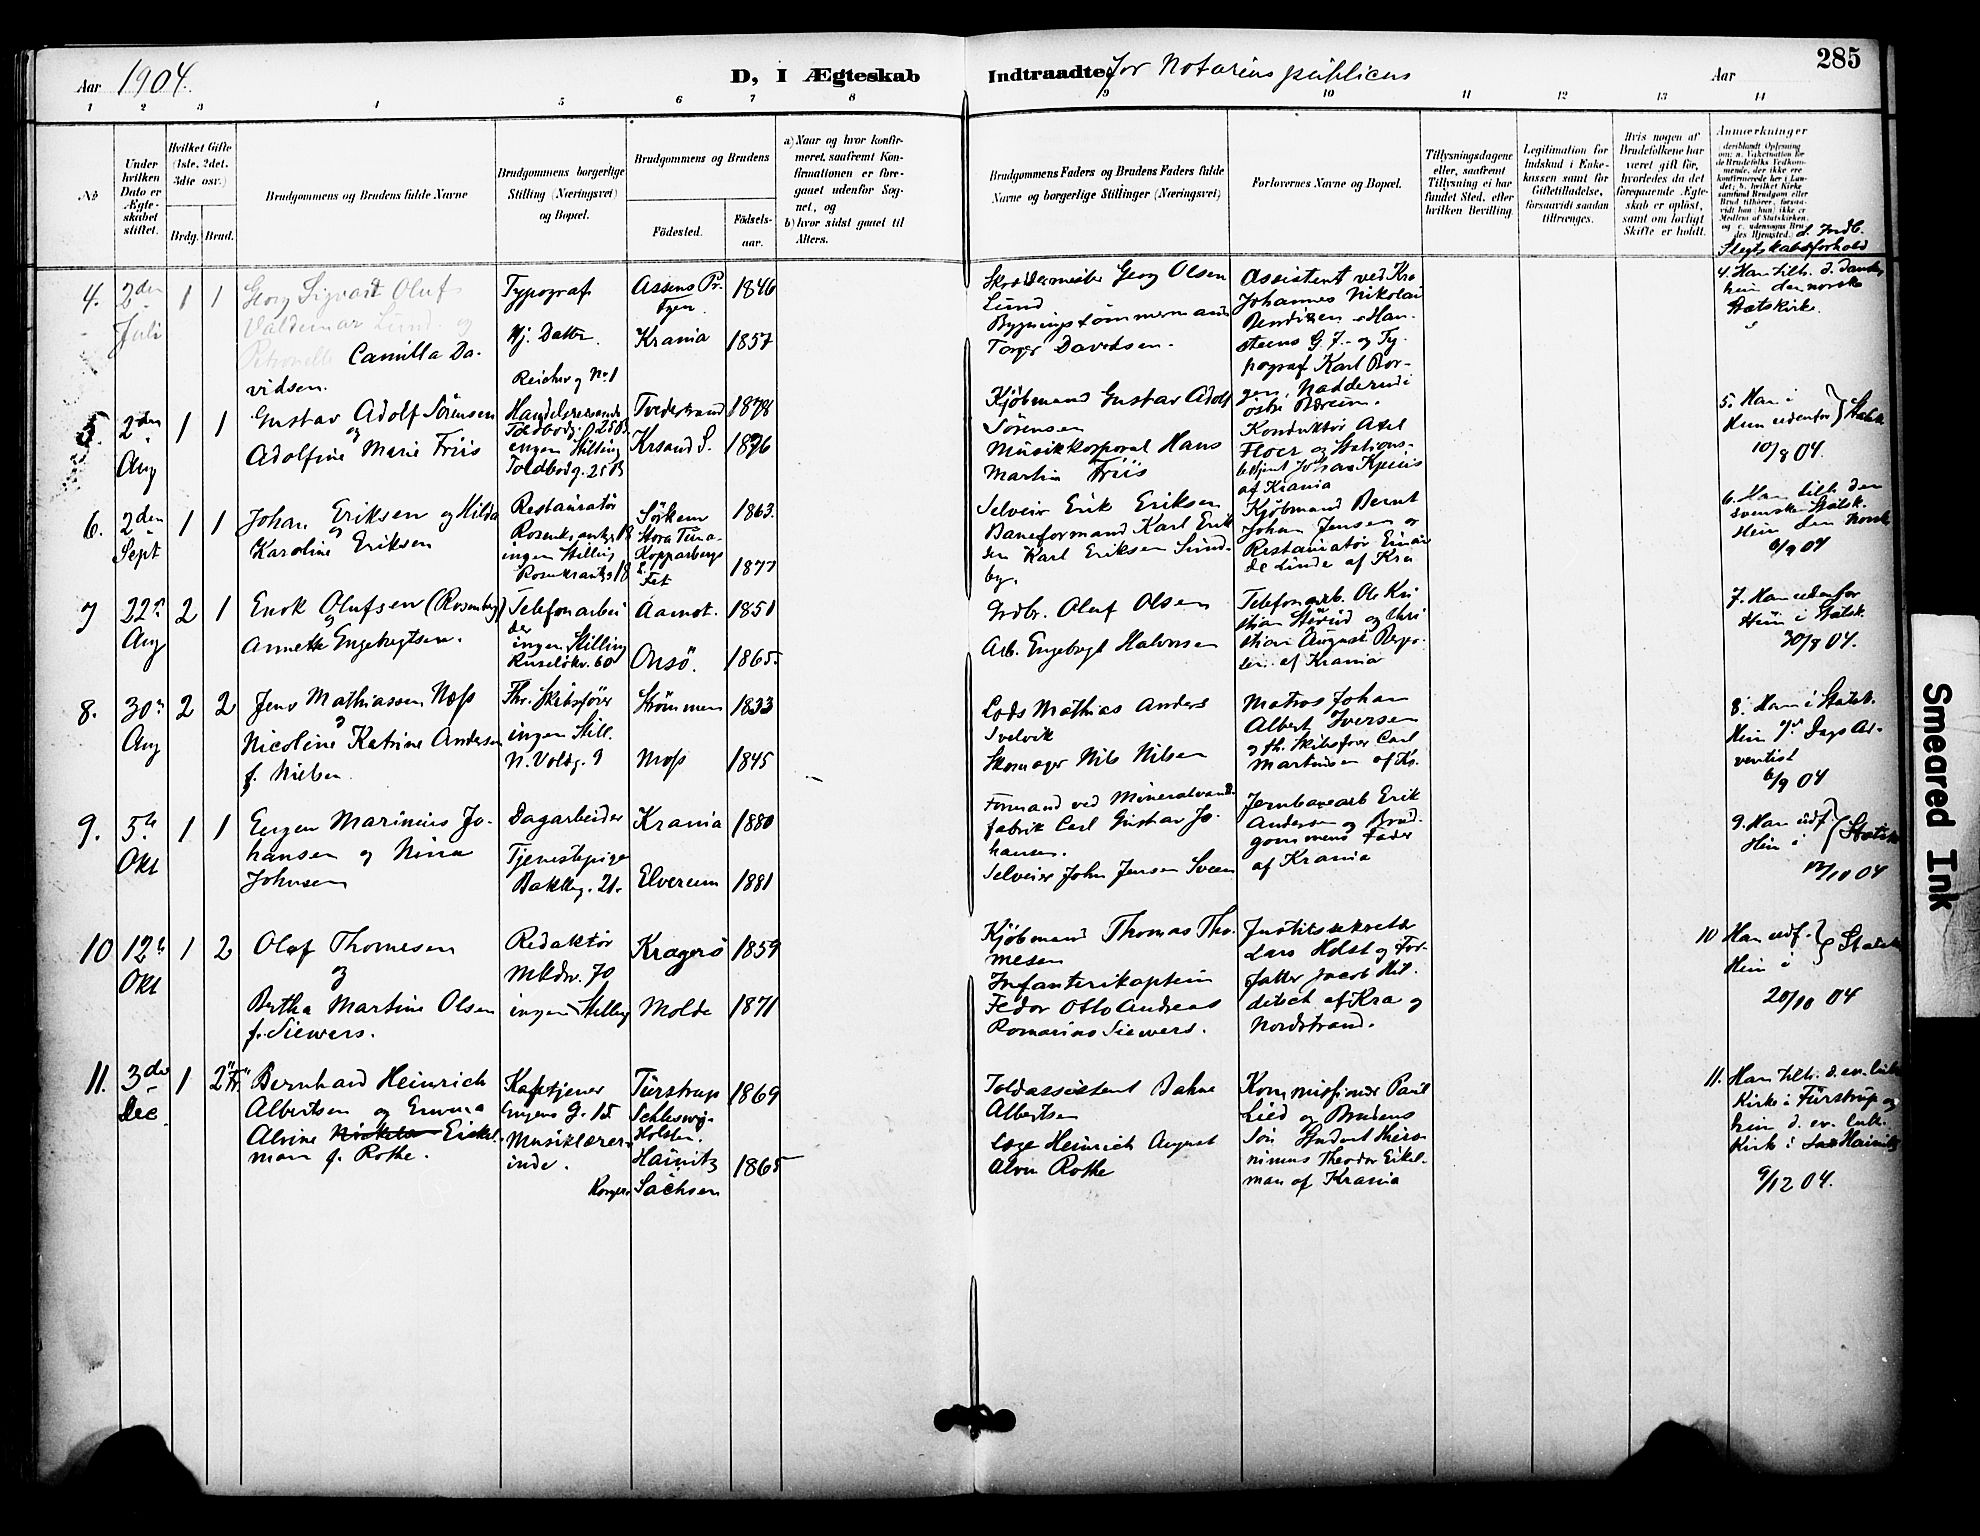 285
Aar 1904. D, I Ægteskab Indtraadte for Notarius publicus Aar
1 2 3 4 5 6 7 8 9 10 11 12 13 14
No
Under hvilken Dato er Ægteskabet stiftet.
Hvilket Gifte (1ste, 2det, 3die osv.)
Brdg. Brud.
Brudgommens og Brudens fulde Navne
Brudgommens borgerlige Stilling (Næringsvei) og Bopæl.
Brudgommens og Brudens
Födested. Födsels-aar.
a) Naar og hvor konfirmeret, saafremt Konfirmationen er foregaaet udenfor Sognet, og
b) hvor sidst gaaet til Alters.
Brudgommens Faders og Brudens Faders fulde Navne og borgerlige Stillinger (Næringsvei)
Forlovernes Navne og Bopæl.
Tillysningsdagene eller, saafremt Tillysning ei har fundet Sted, efter hvilken Bevilling.
Legitimation for Indskud i Enkekassen samt for Giftetilladelse, forsaavidt saadan tiltrænges.
Hvis nogen af Brudefolkene har været gift för, hvorledes da det foregaaende Ægteskab er oplöst, samt om lovligt Skifte er holdt.
Anmærkninger
d. Indb. Slegtskabsforhold
4. 2den Juli 1 1
Georg Sigvart Oluf
Valdemar Lund og
Camilla Da-
vidsen.
Typograf
Hj. Datter.
Assens Pr.
Fyen
1846
Krania 1857
Skræddermester Georg Olsen
Lund
Bygningstömmermand
Torger Davidsen.
Assistent ved Kra
Johannes Nikolai
Bendixen, Han-
steens G. 7 - og Ty-
pograf Karl Bor-
gen, Nadderud i
östre Bærum.
4. Han tilh. d. danske
hun den norske
Statskirke.
5. 2den Aug 1 1
Gustav Adolf Sörensen
og
Adolfine Marie Friis
Handelsreisende
Toldbodg. 25 B.
ingen Stilling
Toldbodg. 25 B
Tvedestrand 1878
Krsand S. 1876
Kjöbmand Gustav Adolf
Sörensen
Musikkorporal Hans
Martin Friis
Konduktör Axel
Floer og Stations-
betjent Johan
af Krania
5. Han i
Hun udenfor } Statsk.
10/8 04.
6. 2den Sept 1 1
Johan Eriksen og Hilda
Karoline Eriksen
Restauratör
Rosenkrantzg 18
ingen Stilling
Rosenkrantzg 18
Stora Tuna
Kopparbergs
L.
Fet
1863.
1877
Selveier Erik Eriksen
Baneformand Karl Erik
sen Karl Eriksen Sund-
by.
Kjöbmand Bernt
Johan Jensen og
Restauratör Einar
de Linde af Kra
6. Han tilh. den
svenske Statsk.
Hun den norske
6/9 04
7 22. Aug 2 1
Enok Olufsen (Rosenberg)
og
Annette Engebregtsen.
Telefonarbei
der
ingen Stilling
Ruselökv. 60
Aamot. 1851
Onsö. 1865
Grdbr. Oluf Olsen
Arb. Engebregt Halvorsen
Telefonarb. Ole Kri
stian Störud og Chri
stian August Berge-
sen af Krania
7. Han udenfor
Hun i Statsk.
30/8 04.
8. 30. Aug 2 2
Jens Mathiassen Næss
og
Nicoline Katrine Andersen
f. Nielsen.
Fhv. Skibsförer
ingen Still.
N. Voldg. 9
Strömmen 1833
Moss 1845
Lods Mathias Anders
Svelvik
Skomager Nils Nilsen
Matros Johan
Albert Iversen
og fh. Skibsförer Carl
Martinsen af Kr.
8. Han i Statsk.
Hun 7de Dags Ad-
ventist
6/9 04
9. 5te Okt 1 1
Eugen Marinius Jo-
hansen og Nina
Johnsen
Dagarbeider
Tjenestepige
Bakkeg. 21.
Krania 1880
Elverum 1881
Formand ved Mineralvand-
fabrik Carl Gustav Jo-
hansen.
Selveier John Jensen Sveen
Jernbanearb Erik
Andersen og Brud-
gommens Fader
af Krania
9. Han udf
Hun i } Statsk
12/10 04
10 12te Okt 1 2
Olaf Thomesen
og
Bertha Martine Olsen
f. Siewers.
Redaktör
Mkdv. 70
ingen Stilling
Kragerö 1859
Molde 1871
Kjöbmand Thomas Tho-
mesen
Infanterikaptein
Fedor Otto Andreas
Romarino Siewers.
Justitssekretær
Lars Holst og For-
fatter Jacob Hil-
ditch af Kra og
Nordstrand.
10 Han udf.
Hun i } Statsk
20/10 04
11. 3die Dec. 1 2
Bernhard Heinrich
Albertsen og Emma
Alvine Eickel-
man f. Rothe.
Kafetjener
Eugens G. 15
Musiklærer-
inde.
Türstrup
Schleswig-
Holsten.
1869
Hainitz
Kongr. Sachsen
1865
Toldassistent Dahne
Albertsen
Loge Heinrich August
Alvin Rothe
Kommissionær Paul
Lied og Brudens
Sön Student Hiero
nimus Theodor Eikel-
man af Krania
11. Han tilh. d. ev. luth
Kirke i Fürstrup og
hun d. ev. luth.
Kirk i Hainitz
9/12 04.
Smeared Ink